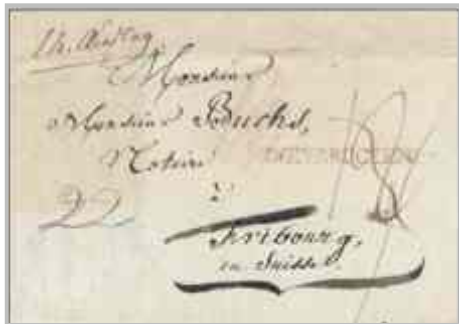 Monsieur
Monsieur Buchs,
Notaire
à
Fribourg,
en Suisse.
22
18